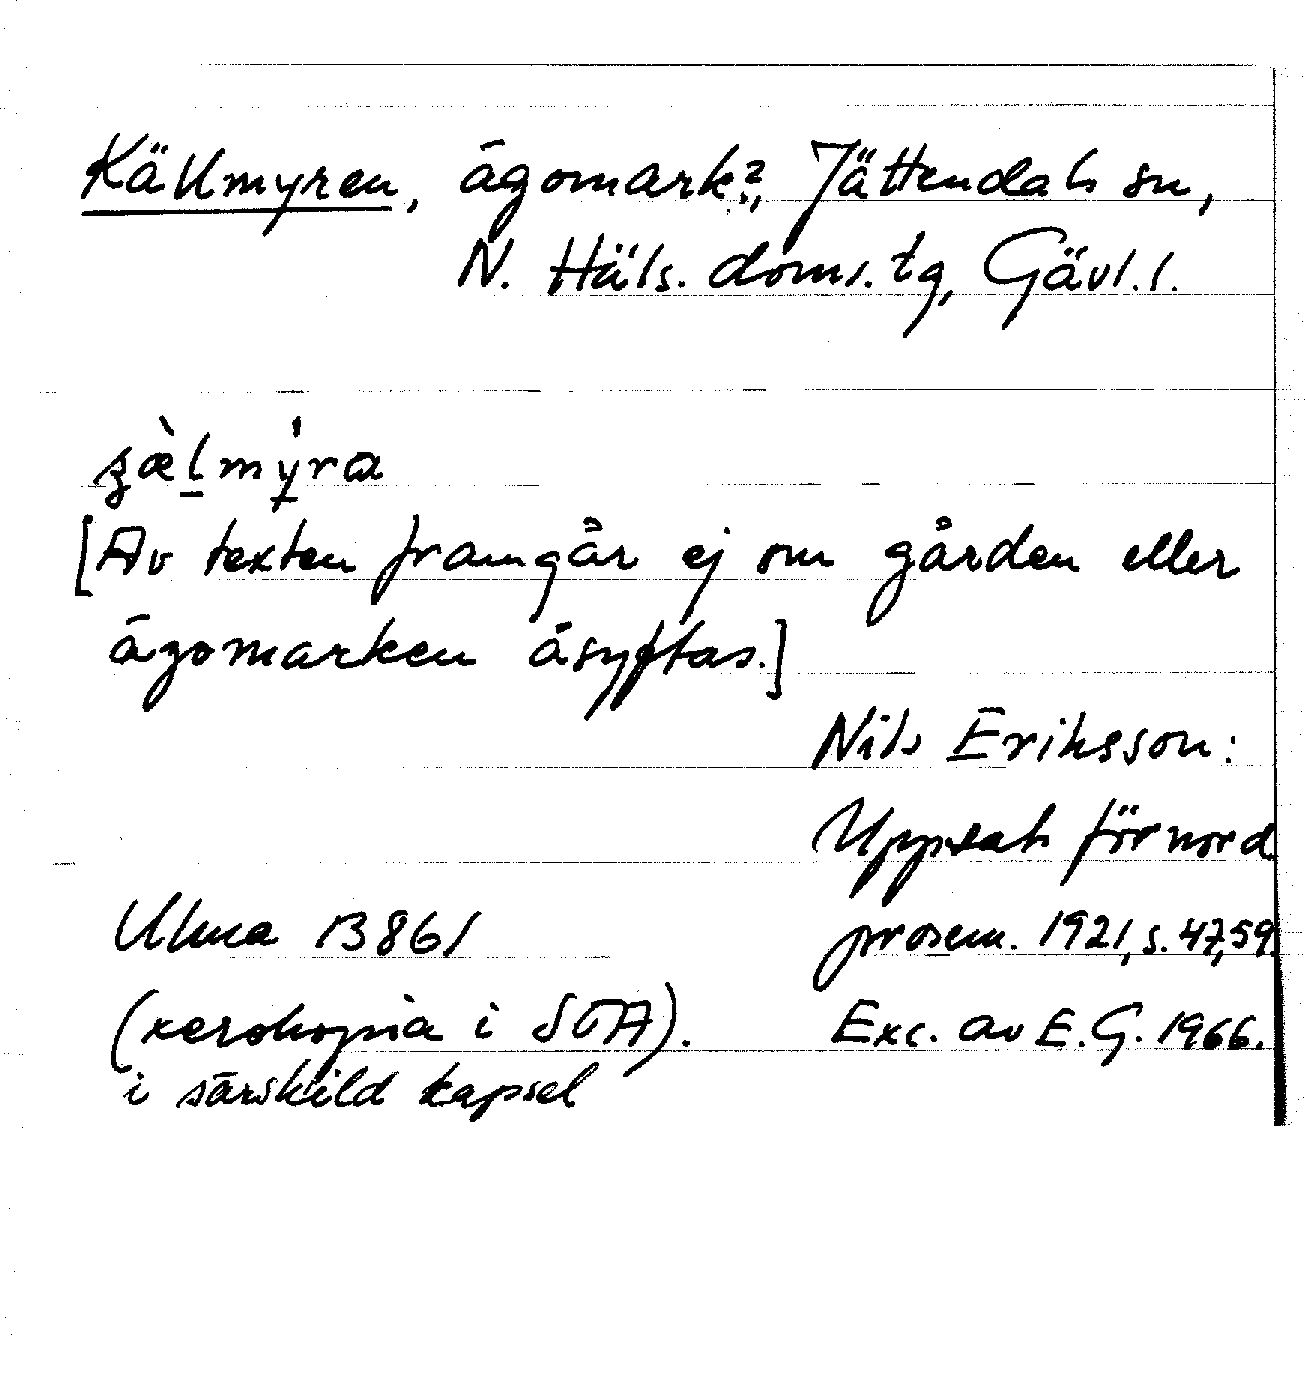 Källmyren, ägomark?, Jättendals sn,
N. Häls. doms. tg, Gävl. l.
ʂæ̀l̠mýra
[Av texten framgår ej om gården eller
ägomarken åsyftas.]
Nils Eriksson:
Uppsats för nord.
prosem. 1921, s. 47, 59.
Ulma 13861
(xerokopia i SOA).
Exc. av E.G. 1966.
i särskild kapsel